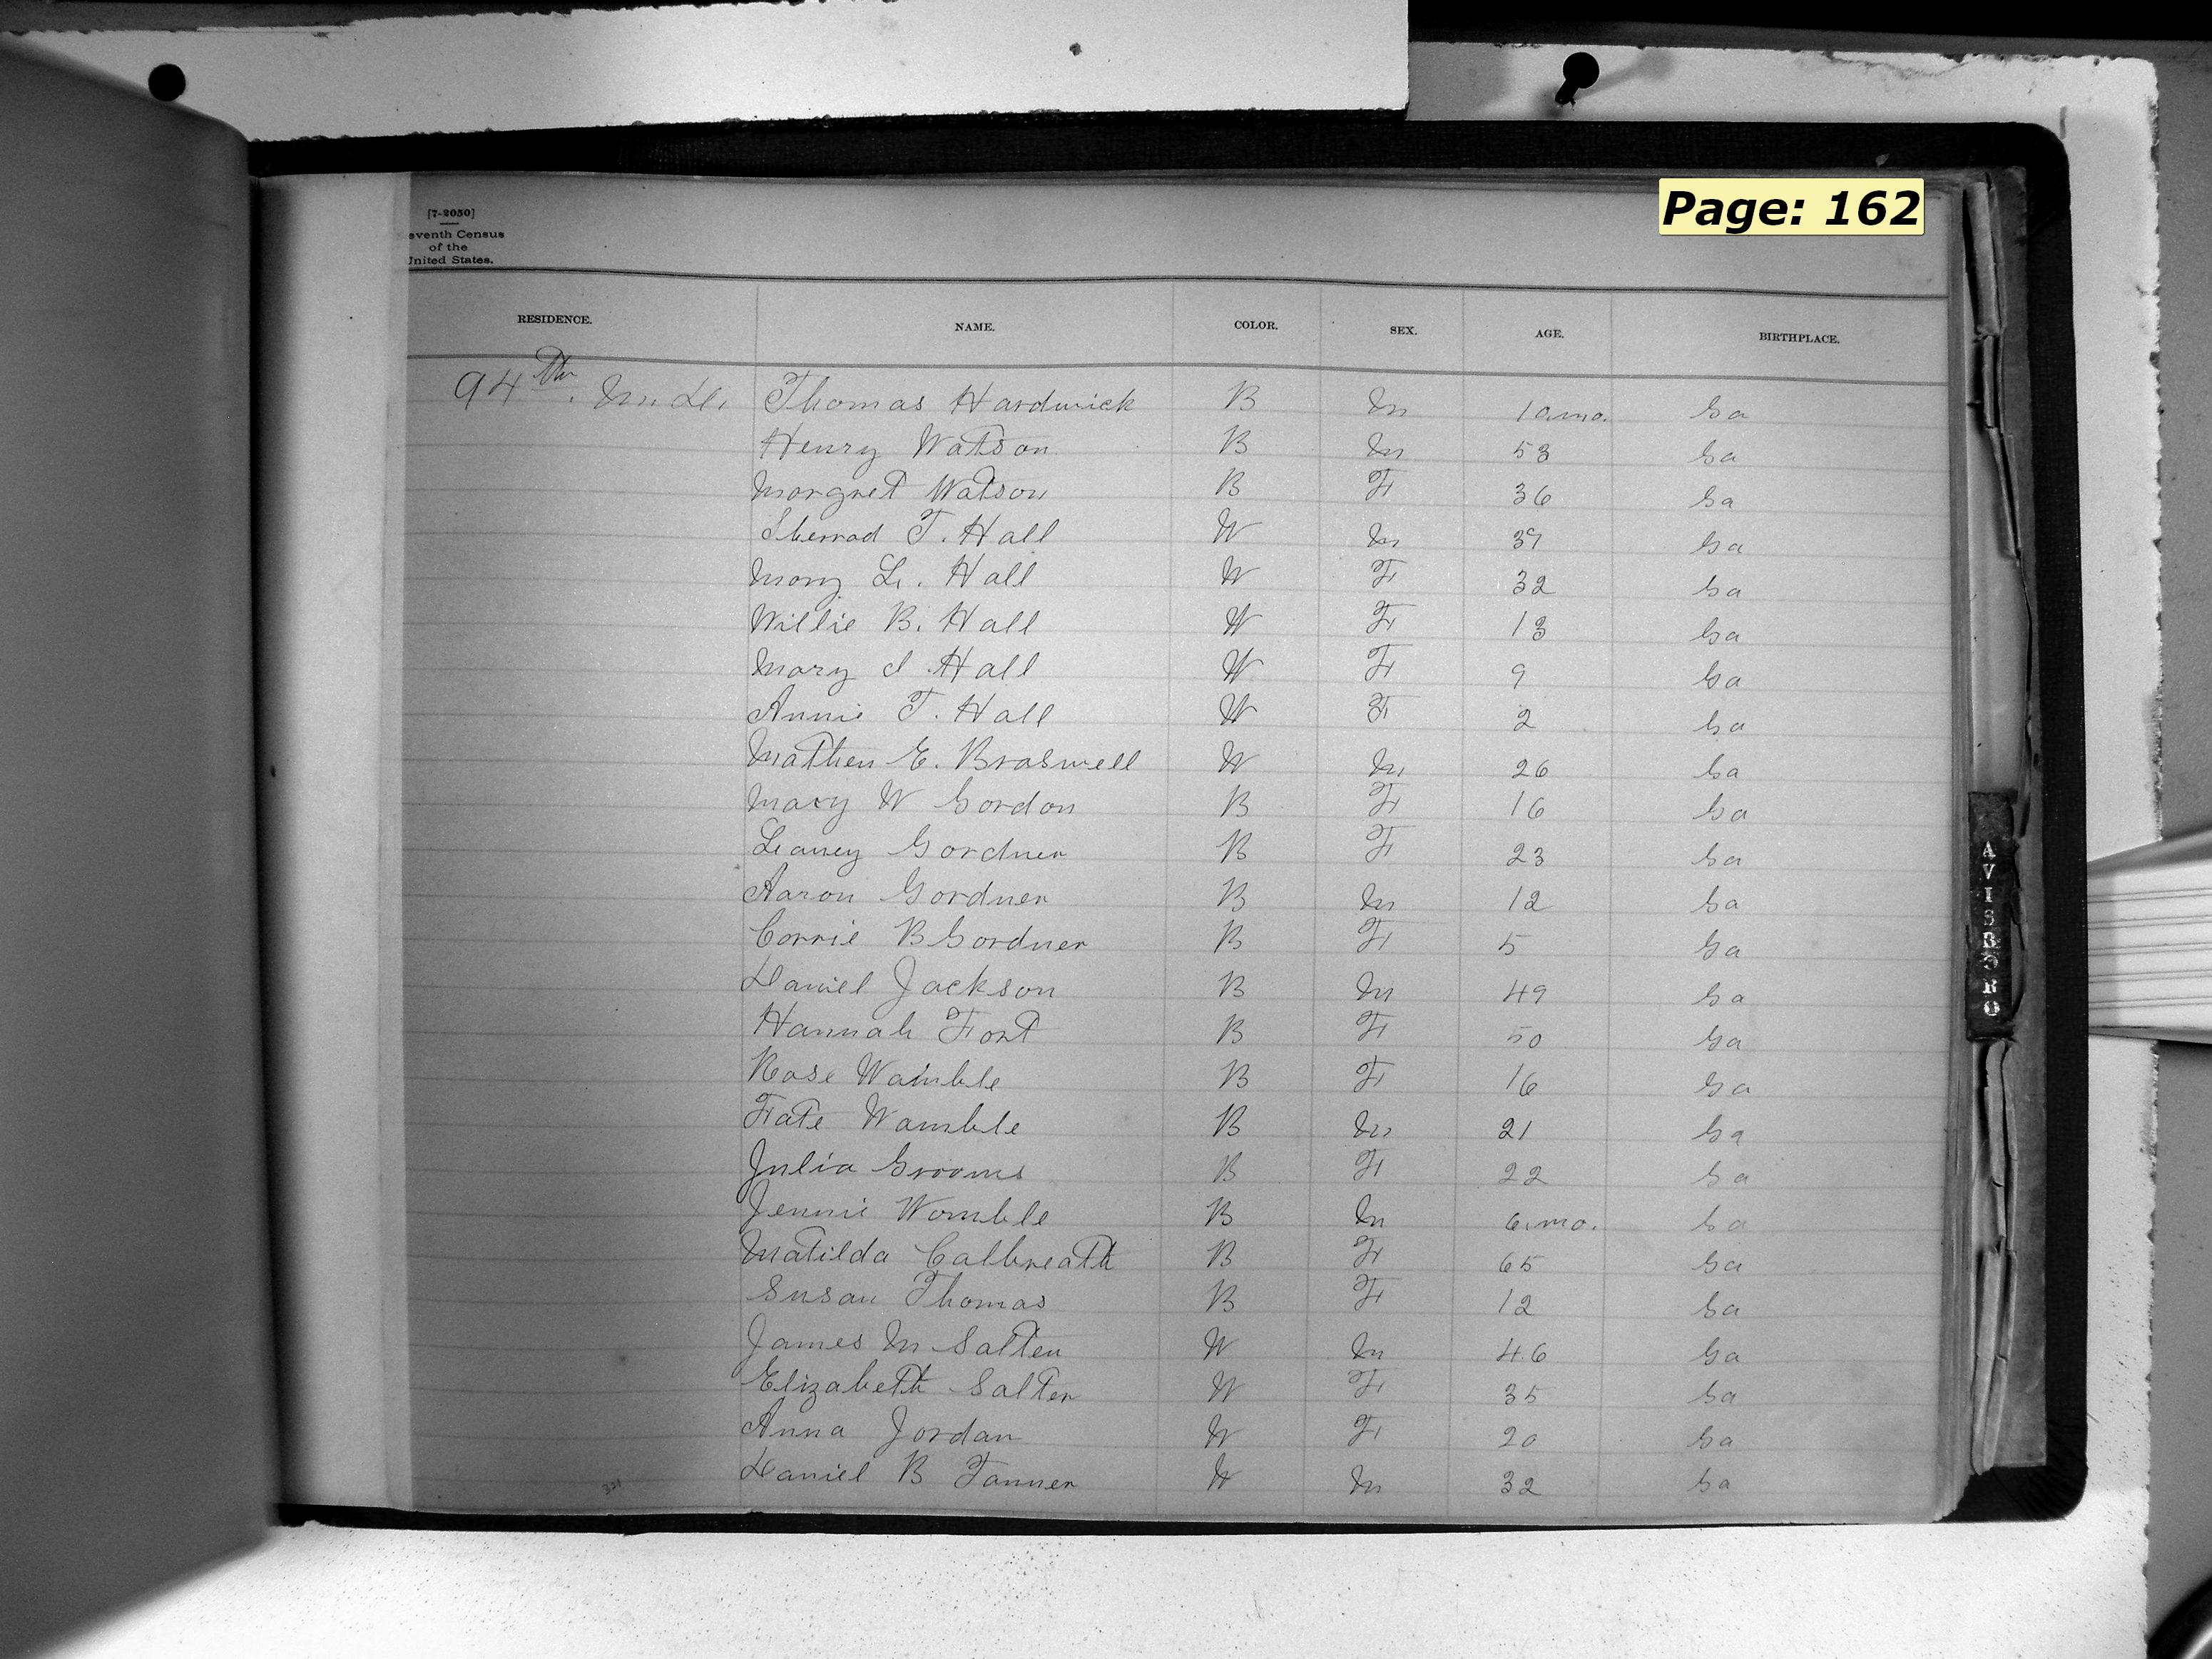 Page: 162
[7-2050]
eventh Census
of the
United States.
RESIDENCE. NAME. COLOR. SEX. AGE. BIRTHPLACE.
94th. M. D. Thomas Hardwick B M 10.mo. Ga
Henry Watson B M 53 Ga
Margret Watson B F 36 Ga
Sherrod T. Hall W M 39 Ga
Mary L. Hall W F 32 Ga
Willie B. Hall W F 13 Ga
Mary J Hall W F 9 Ga
Annie T. Hall W F 2 Ga
Mathew E. Braswell W M 26 Ga
Mary W Gordon B F 16 Ga
Laney Gordner B F 23 Ga
Aaron Gordner B M 12 Ga
Corrie B Gordner B F 5 Ga
Daniel Jackson B M 49 Ga
Hannah Fort B F 50 Ga
Rose Wamble B F 16 Ga
Fate Wamble B M 21 Ga
Julia Grooms B F 22 Ga
Jennie Womble B M 6.mo. Ga
Matilda Calbreath B F 65 Ga
Susan Thomas B F 12 Ga
James M Salter W M 46 Ga
Elizabeth Salter W F 35 Ga
Anna Jordan W F 20 Ga
Daniel B Tanner W M 32 Ga
321
AVISBORO